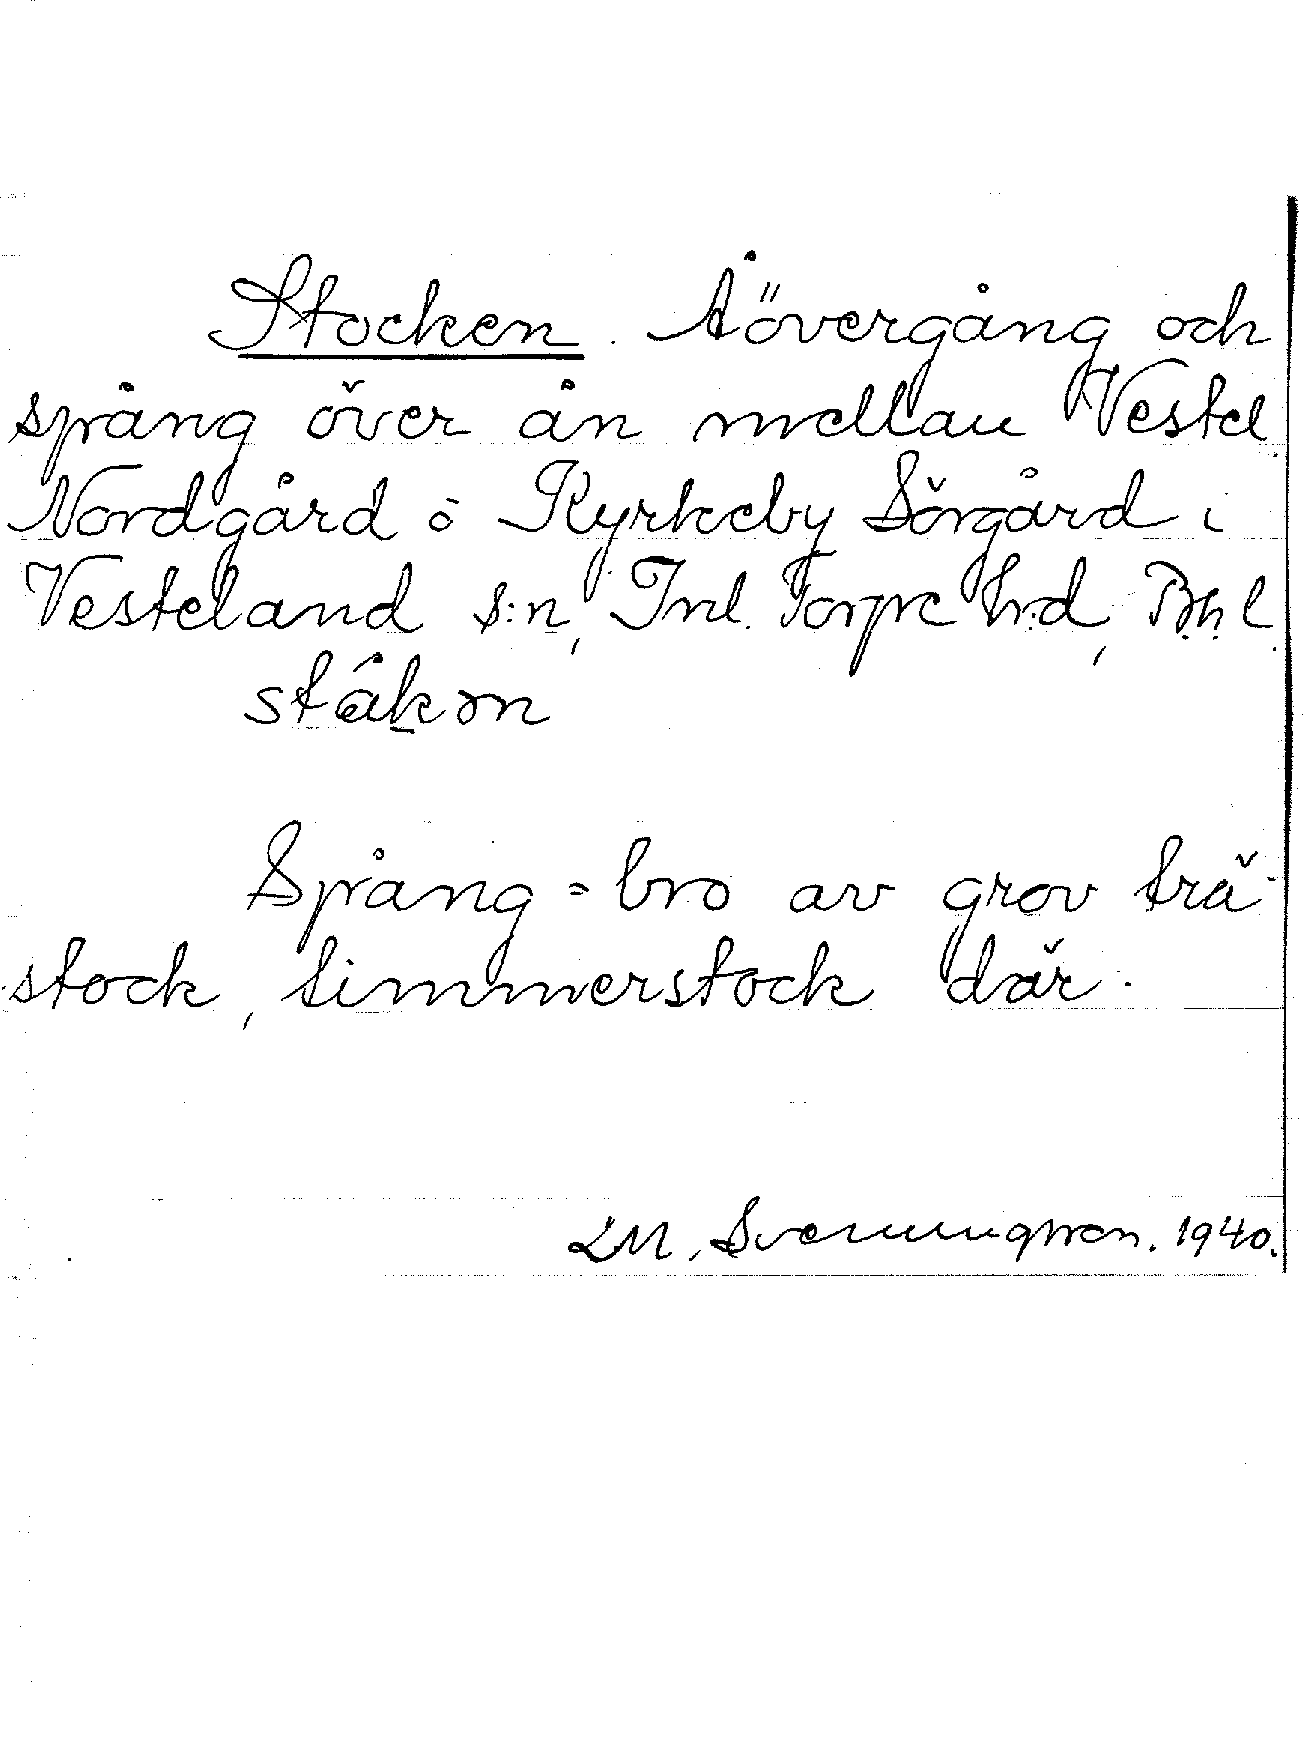 Stocken. Åövergång och
spång över ån mellan Vestel.
Nordgård o Kyrkeby Sörgård i
Vesteland s:n, Inl. Torpe h:d, Bh.l.
ståkon
Spång = bro av grov trä-
stock, timmerstock där.
LM. Svenungsson. 1940.